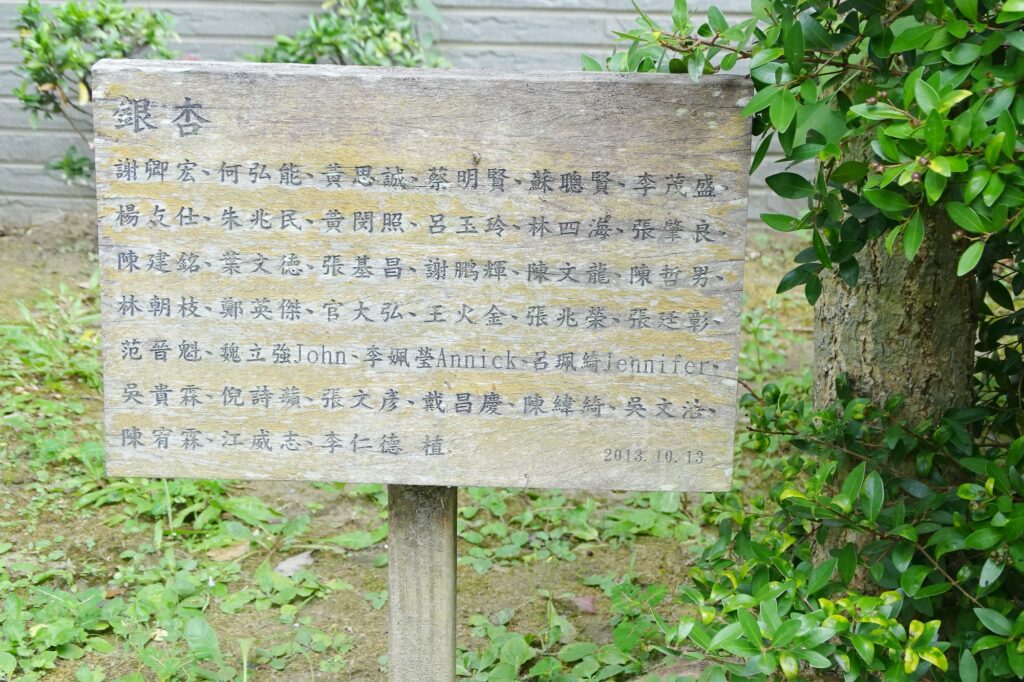 銀杏
謝卿宏、何弘能、黃思誠、蔡明賢、蘇聰賢、李茂盛、
楊文仕、朱兆民、黃閔照、呂玉玲、林四海、張肇良、
陳建銘、葉文德、張基昌、謝鵬輝、陳文龍、陳哲男、
林朝枝、鄭英傑、官大弘、王火金、張兆榮、張廷彰、
范晉魁、魏立強John、李姵瑩Annick、呂珮綺Jennifer、
吳貴霖、倪詩蘋、張文彥、戴昌慶、陳緯綺、吳文浩、
陳宥霖、江威志、李仁德 植 2013.10.13